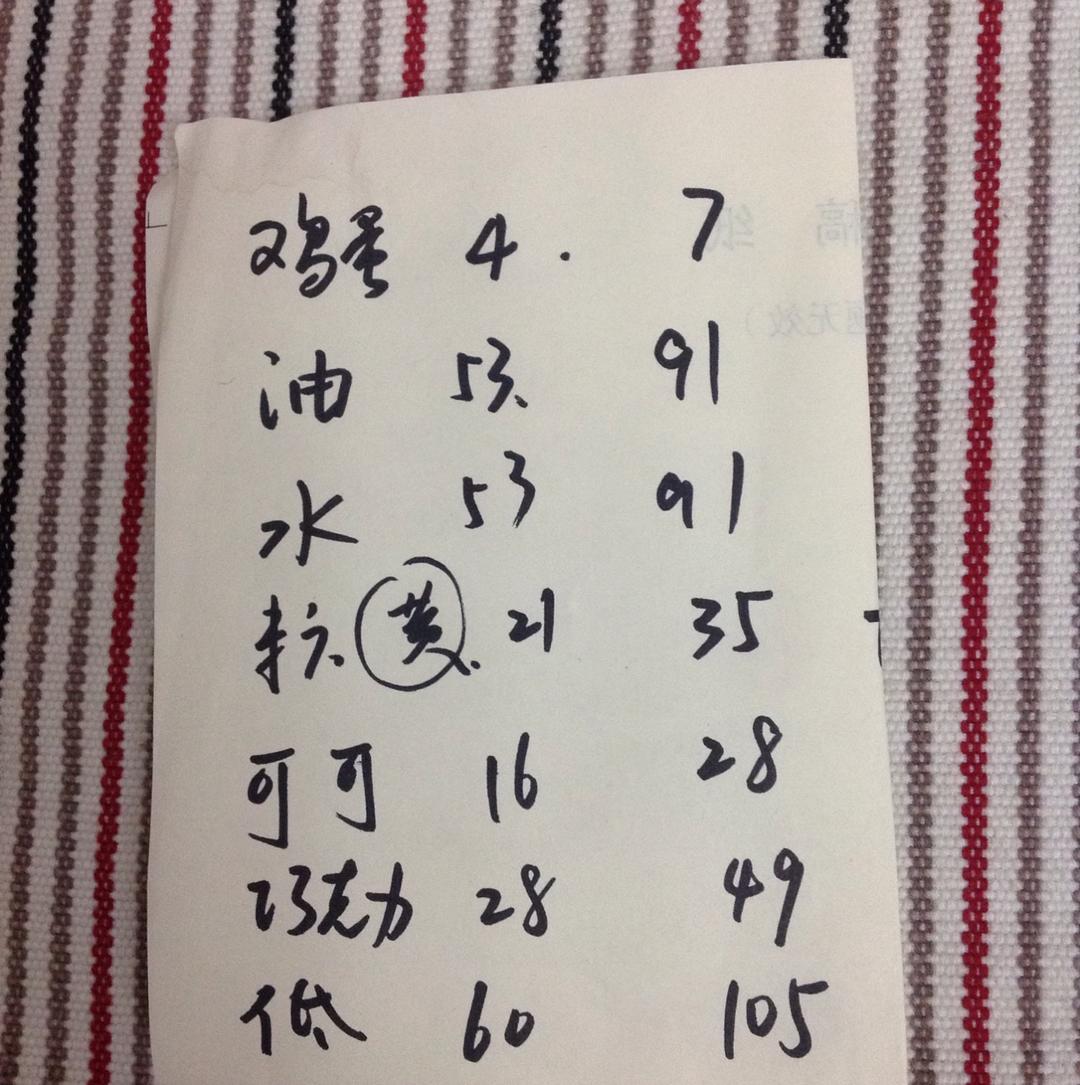 鸡蛋 4. 7
油 53. 91
水 53 91
黄. 21 35
可可 16 28
巧克力 28 49
低 60 105